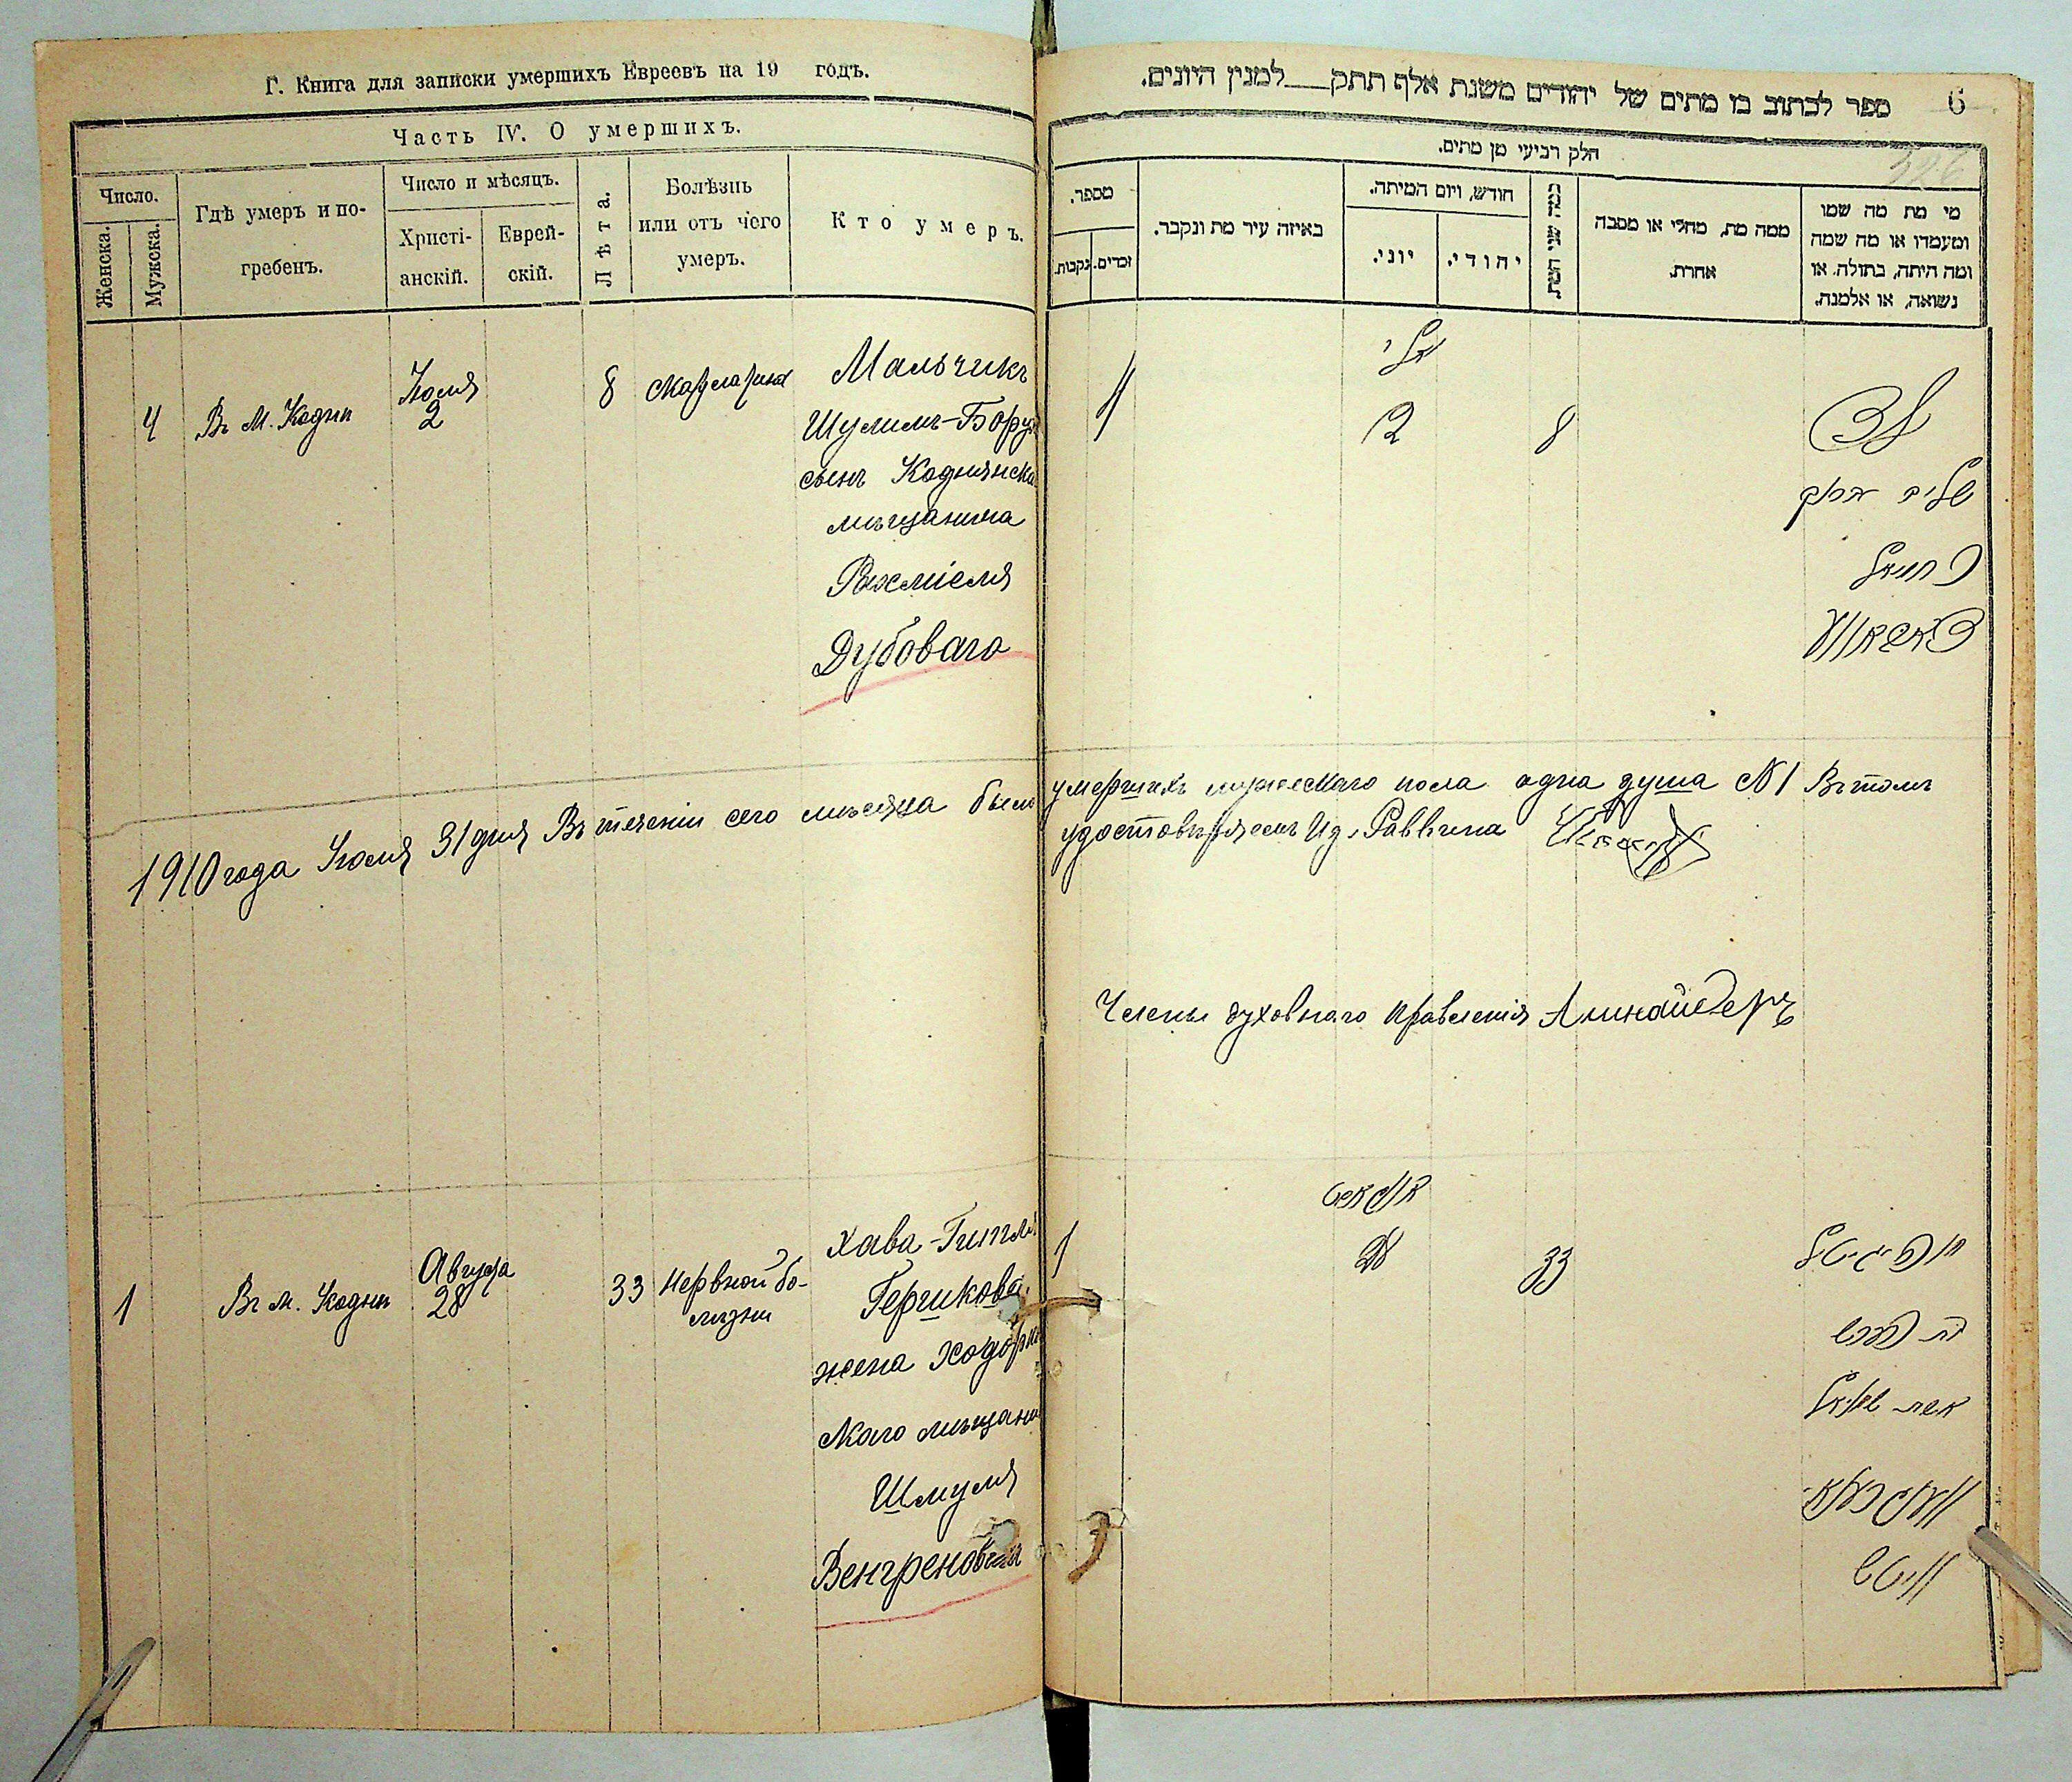 Г. Книга для записки умершихъ Евреевъ на 19 годъ.
Часть IV. О умершихъ.
Число.
Женска.
Мужска.
Гдѣ умеръ и по-
гребенъ.
Число и мѣсяцъ.
Христі-
анскій.
Еврей-
скій.
Лѣта.
Болѣзнь
или отъ чего
умеръ.
Кто умеръ.
4
Въ м. Кодни
Іюля
2
8
скарлатина
Мальчикъ
Шулимъ-Борух
сынъ Коднянска
мѣщанина
Рахміеля
Дубоваго
1910 года Іюля 31 дня Въ теченіи сего мѣсяца было
1
Въ м. Кодни
Августа
28
33
Нервной бо-
лѣзни
Хава-Гитля
Гершкова
жена Ходорко
скаго мѣщани
Шмуля
ספר לכתוב בו מתים של יהודים משנת אלף תתק למנין היונים.
6
חלק רביעי מן מתים.
מספר.
נקבות.
זכרים.
באיזה עיר מת ונקבר.
חודש, ויום המיתה.
יוני.
יהודי.
כמה שני המת.
ממה מת, מחלי או מסבה
אחרת.
מי מת מה שמו
ומעמדו או מה שמה
ומה היתה, בתולה, או
נשואה, או אלמנה.
יולי
2
8
שלום ברוך
ירחמיאל
умершихъ мужескаго пола одна душа №1 Въ томъ
удостовѣряемъ Из. Раввина
Члены духовнаго правленія
1
אווגוסט
28
33
חוה גיטל
בת הערש
אשת שמואל